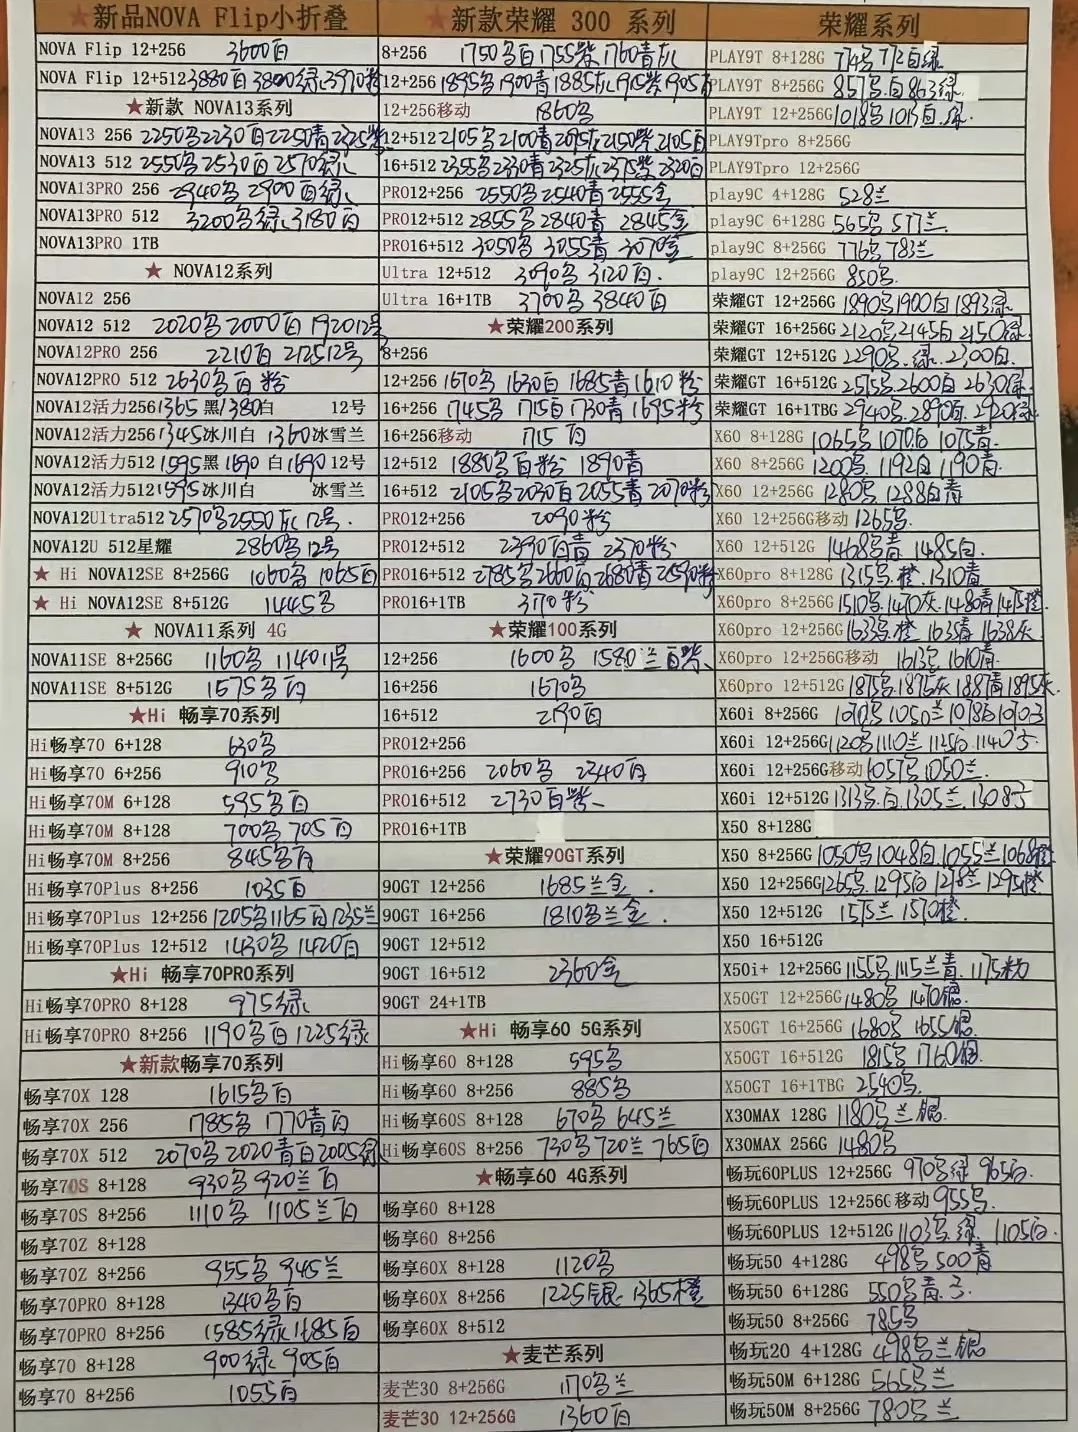 ★新品NOVA Flip小折叠
NOVA Flip 12+256 3600白
NOVA Flip 12+512 3880白3800绿3970粉
★新款 NOVA13系列
NOVA13 256 2250写2230白2250青2325紫
NOVA13 512 2550写2530白2570绿
NOVA13PRO 256 2940写2900白绿
NOVA13PRO 512 3200写绿3180白
NOVA13PRO 1TB
★ NOVA12系列
NOVA12 256
NOVA12 512 2020写2000白1920 12号
NOVA12PRO 256 2210白2125 12号
NOVA12PRO 512 2630写白粉
NOVA12活力256 1365黑1380白 12号
NOVA12活力256 1345冰川白 1360冰雪兰
NOVA12活力512 1595黑1690 白1690 12号
NOVA12活力512 1595冰川白 冰雪兰
NOVA12Ultra512 2570写2550灰12号.
NOVA12U 512星耀 2860写12号
★ Hi NOVA12SE 8+256G 1060写 1065白
★ Hi NOVA12SE 8+512G 1445写
★ NOVA11系列 4G
NOVA11SE 8+256G 1160写 1140 11号
NOVA11SE 8+512G 1575写白
★Hi 畅享70系列
Hi畅享70 6+128 630写
Hi畅享70 6+256 910写
Hi畅享70M 6+128 595写白
Hi畅享70M 8+128 700写 705白
Hi畅享70M 8+256 845写白
Hi畅享70Plus 8+256 1035白
Hi畅享70Plus 12+256 1205写1165白1235兰
Hi畅享70Plus 12+512 1430写 1420白
★Hi 畅享70PRO系列
Hi畅享70PRO 8+128 975绿
Hi畅享70PRO 8+256 1190写白1225绿
★新款畅享70系列
畅享70X 128 1615写白
畅享70X 256 1785写 1770青白
畅享70X 512 2070写2020青白2005绿
畅享70S 8+128 930写920兰白
畅享70S 8+256 1110写 1105兰白
畅享70Z 8+128
畅享70Z 8+256 955写 945兰
畅享70PRO 8+128 1340写白
畅享70PRO 8+256 1585绿1685白
畅享70 8+128 900绿 905白
畅享70 8+256 1055白
★新款荣耀 300 系列
8+256 1750写白1755紫1760青灰
12+256 1895写1900青1885灰1915紫1905白
12+256移动 1860写
12+512 2105写2100青2095灰2150紫2105白
16+512 2355写2330青2325灰2375紫2320白
PRO12+256 2550写2540青2555金
PRO12+512 2855写2840青 2845金
PRO16+512 3050写 3055青 3070金
Ultra 12+512 3090写 3120白.
Ultra 16+1TB 3700写3840白
★荣耀200系列
8+256
12+256 1670写 1630白 1685青1610粉
16+256 1745写 1715白1730青1695粉
16+256移动 1715白
12+512 1880写白粉 1890青
16+512 2105写2030白2055青2070粉
PRO12+256 2090粉
PRO12+512 2390白青2370粉
PRO16+512 2785写2660白2680青2590粉
PRO16+1TB 3170粉
★荣耀100系列
12+256 1600写 1580兰白紫
16+256 1670写
16+512 2190白
PRO12+256
PRO16+256 2060写 2340白
PRO16+512 2730白紫
PRO16+1TB
★荣耀90GT系列
90GT 12+256 1685兰金.
90GT 16+256 1810写兰金.
90GT 12+512
90GT 16+512 2360金
90GT 24+1TB
★Hi 畅享60 5G系列
Hi畅享60 8+128 595写
Hi畅享60 8+256 885写
Hi畅享60S 8+128 670写 645兰
Hi畅享60S 8+256 730写720兰765白
★畅享60 4G系列
畅享60 8+128
畅享60 8+256
畅享60X 8+128 1120写
畅享60X 8+256 1225银 1365橙
畅享60X 8+512
★麦芒系列
麦芒30 8+256G 1170写兰
麦芒30 12+256G 1360白
荣耀系列
PLAY9T 8+128G 774写772白绿
PLAY9T 8+256G 857写.白863绿
PLAY9T 12+256G 1018写1013白.绿.
PLAY9Tpro 8+256G
PLAY9Tpro 12+256G
play9C 4+128G 528兰
play9C 6+128G 565写577兰
play9C 8+256G 776写783兰
play9C 12+256G 850写.
荣耀GT 12+256G 1890写1900白1893绿
荣耀GT 16+256G 2120写2145白2150绿
荣耀GT 12+512G 2290写.绿.2300白.
荣耀GT 16+512G 2575写2600白2630绿
荣耀GT 16+1TBG 2940写.2890白.2920绿
X60 8+128G 1065写1070白1075青.
X60 8+256G 1200写.1192白1190青.
X60 12+256G 1280写 1288白青
X60 12+256G移动1265写.
X60 12+512G 1468写青 1485白.
X60pro 8+128G 1315写.橙.1310青
X60pro 8+256G 1510写.1470灰.1480青1475橙.
X60pro 12+256G 1633写.橙 1635青1638灰
X60pro 12+256G移动 1613写1610青.
X60pro 12+512G 1875写.1875灰1887青1895灰.
X60i 8+256G 1070写1050兰1078白1070子
X60i 12+256G 1120写1110兰1125白1140子
X60i 12+256G移动1057写1050兰.
X60i 12+512G 1313写.白.1305兰.1308子
X50 8+128G
X50 8+256G 1050写1048白.1055兰1068橙
X50 12+256G 1265写.1295白1278兰1295橙
X50 12+512G 1575兰1570橙.
X50 16+512G
X50i+ 12+256G 1155写1115兰青.1175粉
X50GT 12+256G 1480写 1470银.
X50GT 16+256G 1680写1655银.
X50GT 16+512G 1815写1760银.
X50GT 16+1TBG 2540写.
X30MAX 128G 1180写兰.银.
X30MAX 256G 1480写
畅玩60PLUS 12+256G 970写绿965白.
畅玩60PLUS 12+256G移动955写.
畅玩60PLUS 12+512G 1103写.绿.1105白.
畅玩50 4+128G 498写500青
畅玩50 6+128G 550写青.子.
畅玩50 8+256G 785写
畅玩20 4+128G 498写兰银
畅玩50M 6+128G 565写兰
畅玩50M 8+256G 780写兰